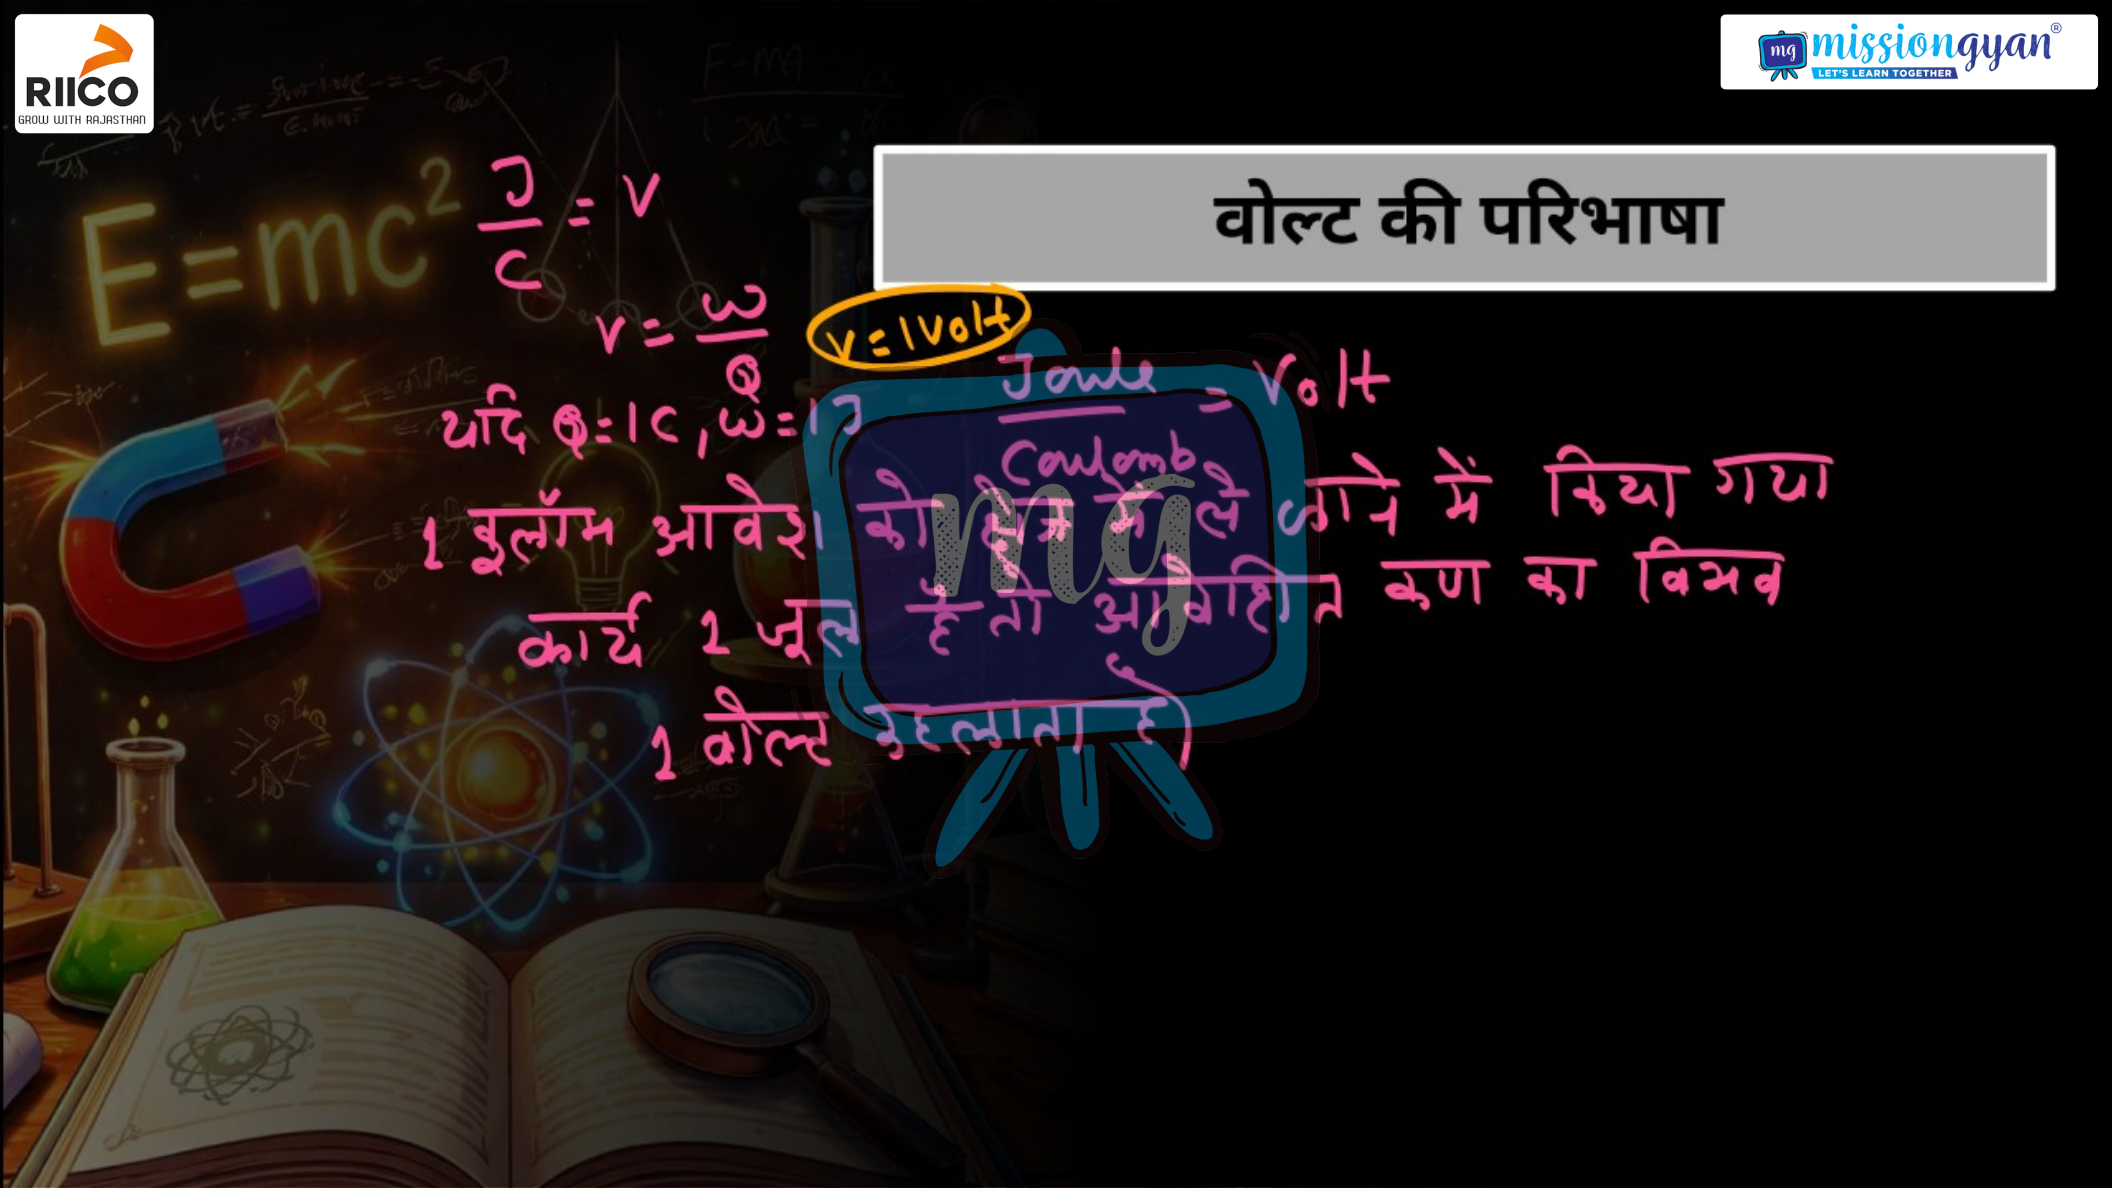 RIICO
GROW WITH RAJASTHAN
mg missiongyan®
LET'S LEARN TOGETHER
E=mc²
F=ma
वोल्ट की परिभाषा
J/C = V
V = W/Q
V=1Volt
Joule/Coulomb = Volt
यदि Q=1C, W=1J
1 कुलॉम आवेश को क्षेत्र में ले जाने में किया गया
कार्य 1 जूल है तो आवेशित कण का विभव
1 वोल्ट कहलाता है)
mg